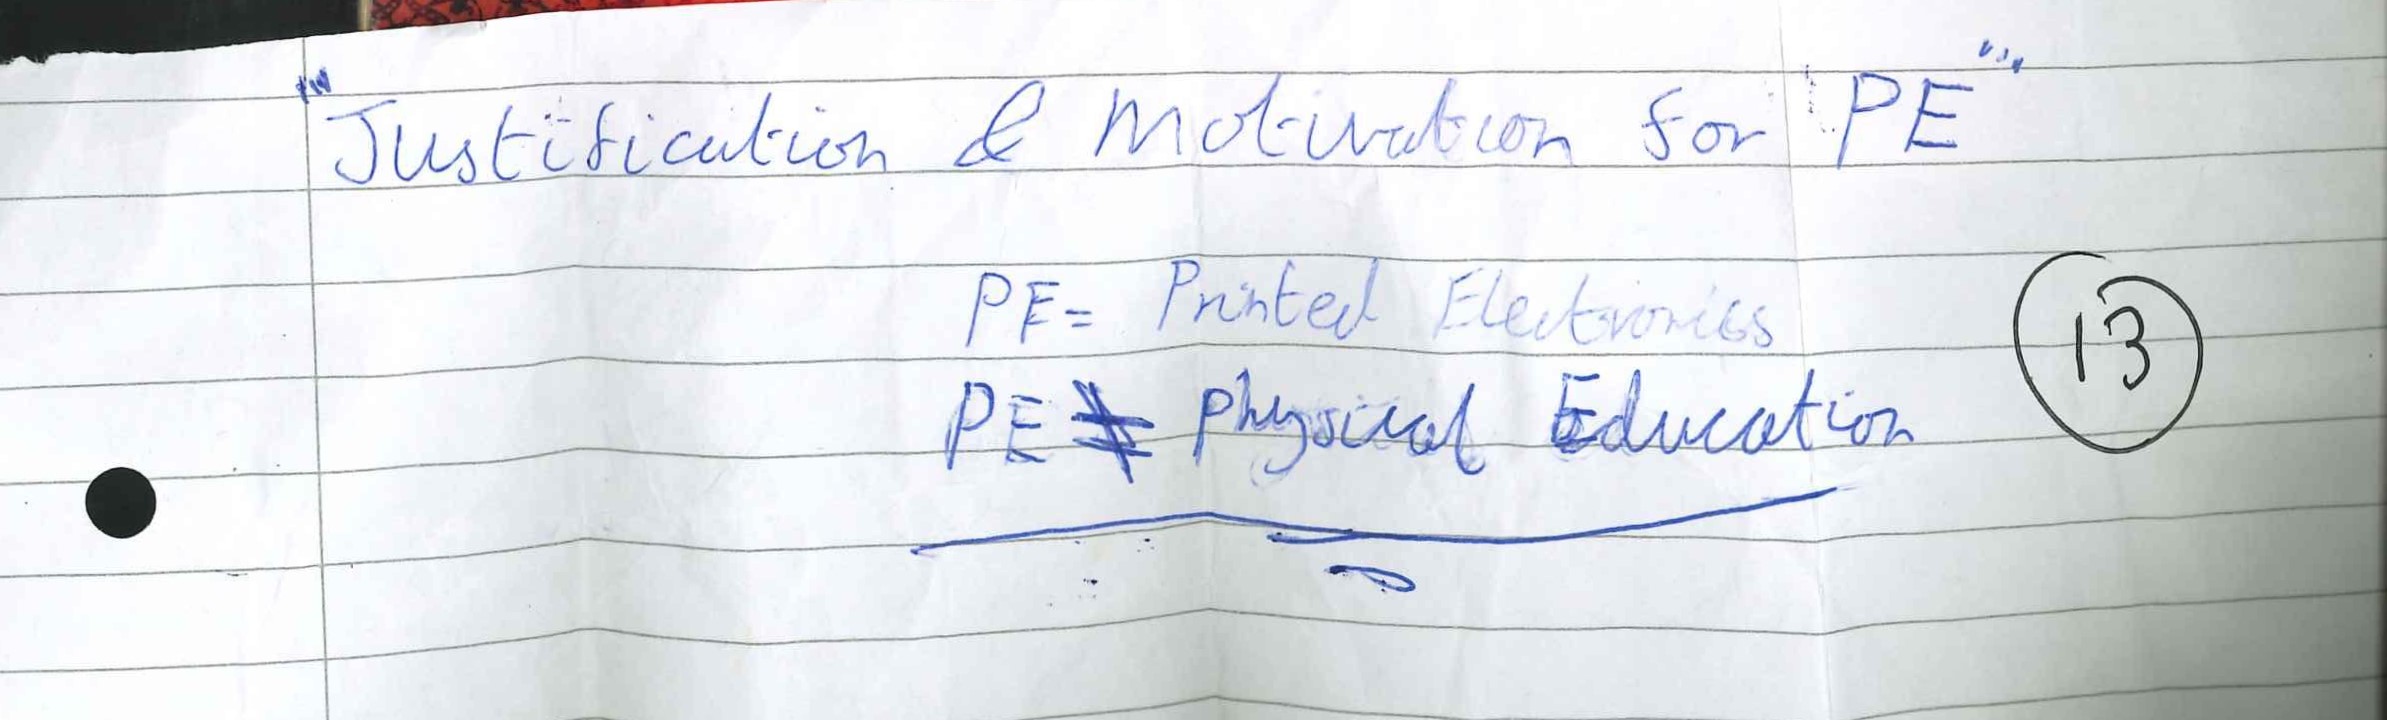 "Justification & Motivation for PE"
PE = Printed Electronics
13
PE ≠ Physical Education